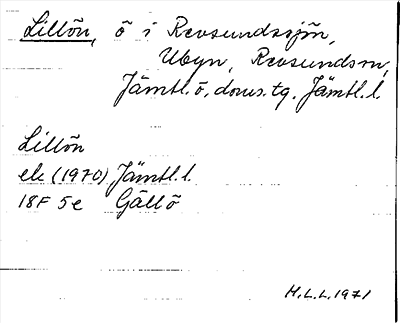 Lillön, ö i Revsundssjön,
Ubyn, Revsunds sn,
Jämtl. ö. doms. tg. Jämtl. l.
Lillön
ek (1970) Jämtl. l.
18F 5e Gällö
H.L.L. 1971